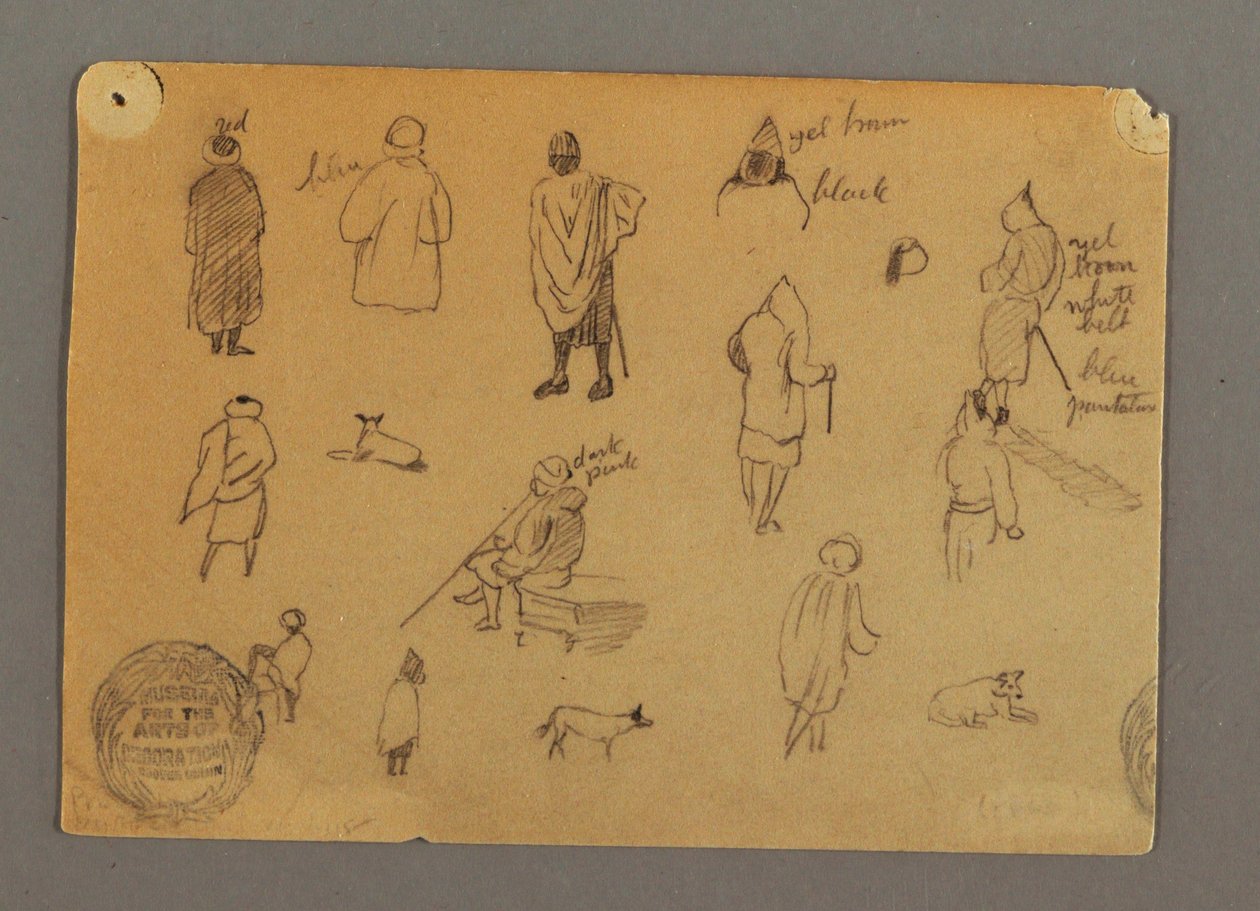 red
blue
yel brown
black
yel
brown
white
belt
blue
dark
pink
MUSEUM
FOR THE
ARTS OF
DECORATION
COOPER UNION